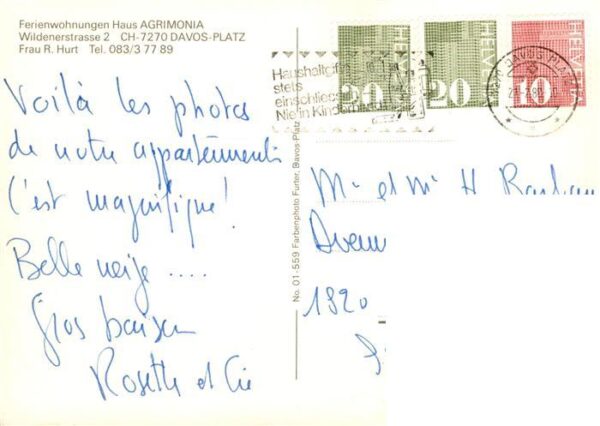 Ferienwohnungen Haus AGRIMONIA
Wildenerstrasse 2 CH-7270 DAVOS-PLATZ
Frau R. Hurt Tel. 083/3 77 89
Voilà les photos
de notre appartement
C'est magnifique!
Belle neige ....
Gros baisers
Rosette et Cie
No. 01-559 Farbenphoto Furter, Davos-Platz
Haushaltgifte
stets
einschliessen
Nie in Kinder
HELVETIA 20
HELVETIA 20
HELVETIA 10
DAVOS PLATZ
Mr et Me H
Aven
1820